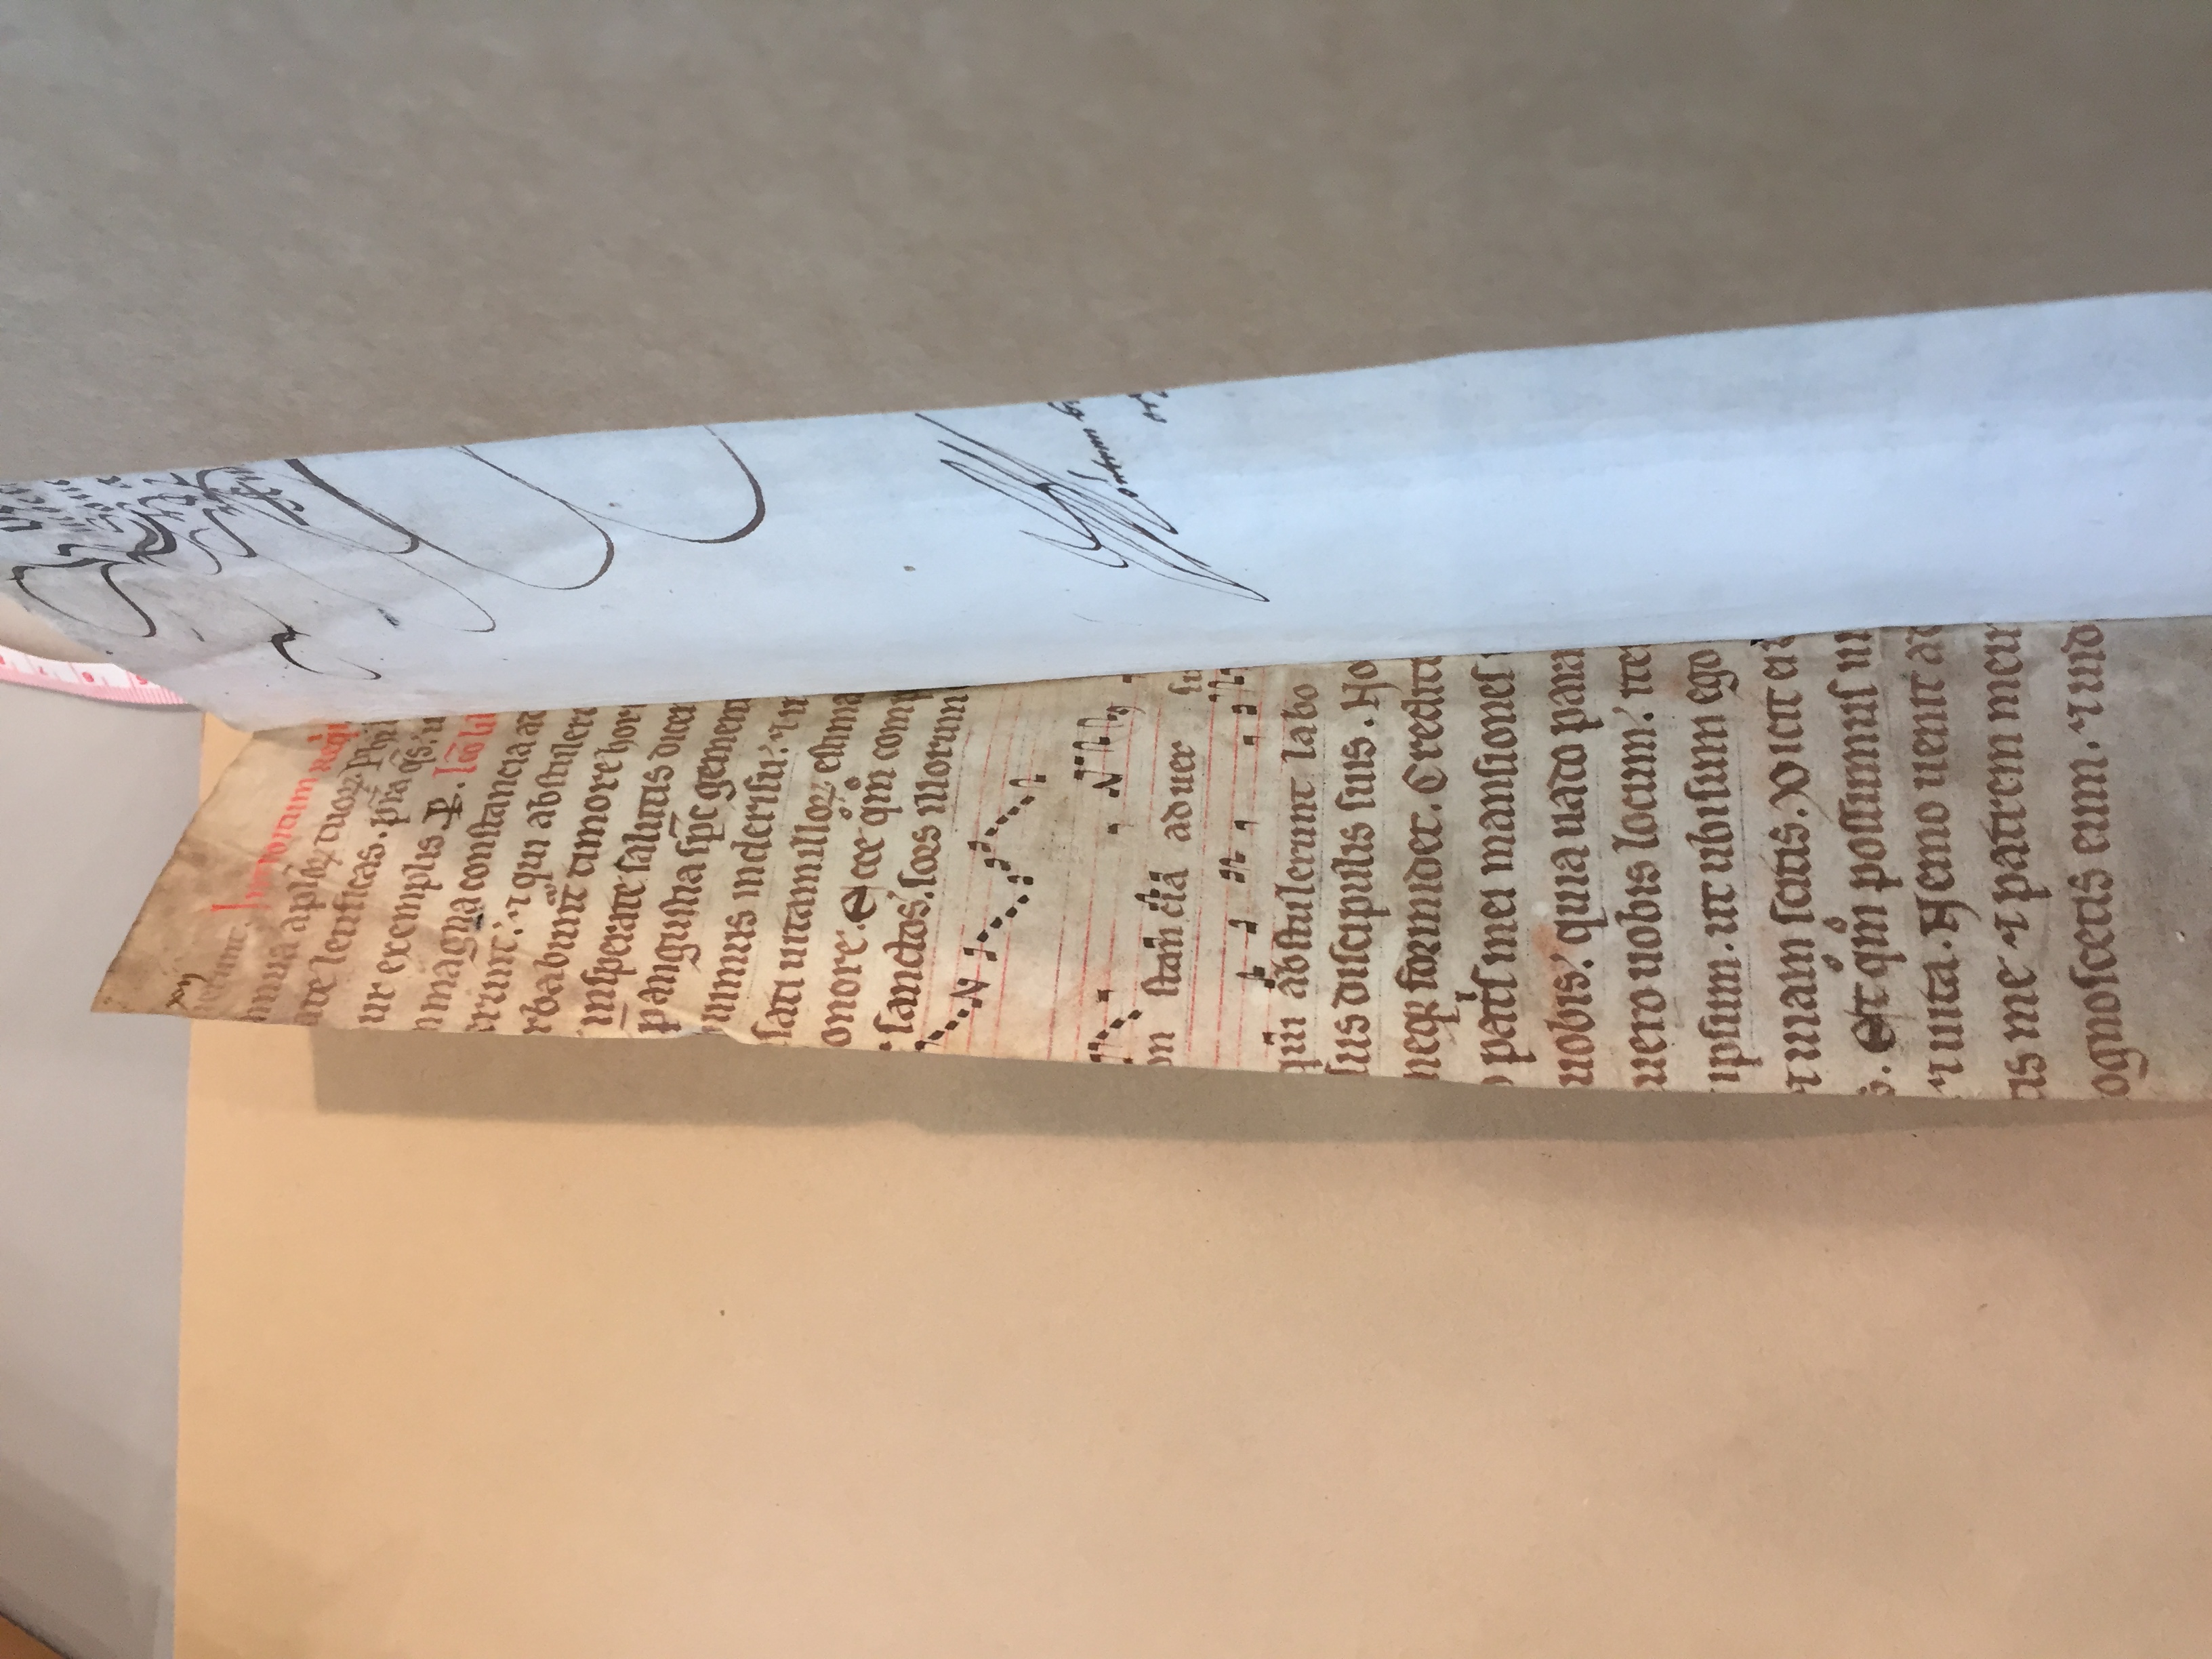 xij
ierunt. Introitum req̇
nnua aplo̅ꝝ tuoꝝ. Phil
ate letificas. p̅ra q̅s: u
ur exemplis. P. Lc̅o li
n magna constancia ad
erunt: ⁊ qui abstulere
rbabunt᷑ timore horr
insperate salutis dicen
p̅ angustia sp̅c gement
uimus in derisu: ⁊ u
sati uitam illoꝝ estima
onore. Ecce qͦmͦ comp
r sanctos: sors illorum
on stan cia aduer su
qui abstulerunt labo
sus discipulis suis. No
neqꝫ formidet. Credit
o patͥs mei mansiones
uobis: quia uado para
uero uobis locum: ite
ipsum. ut ubi sum ego
⁊ uiam scitis. Dicit ei t
s. Et qͦmͦ possumus ui
⁊ uita. Nemo uenit ad
tis me ⁊ patrem meum
ognoscetis eum. ⁊ uid